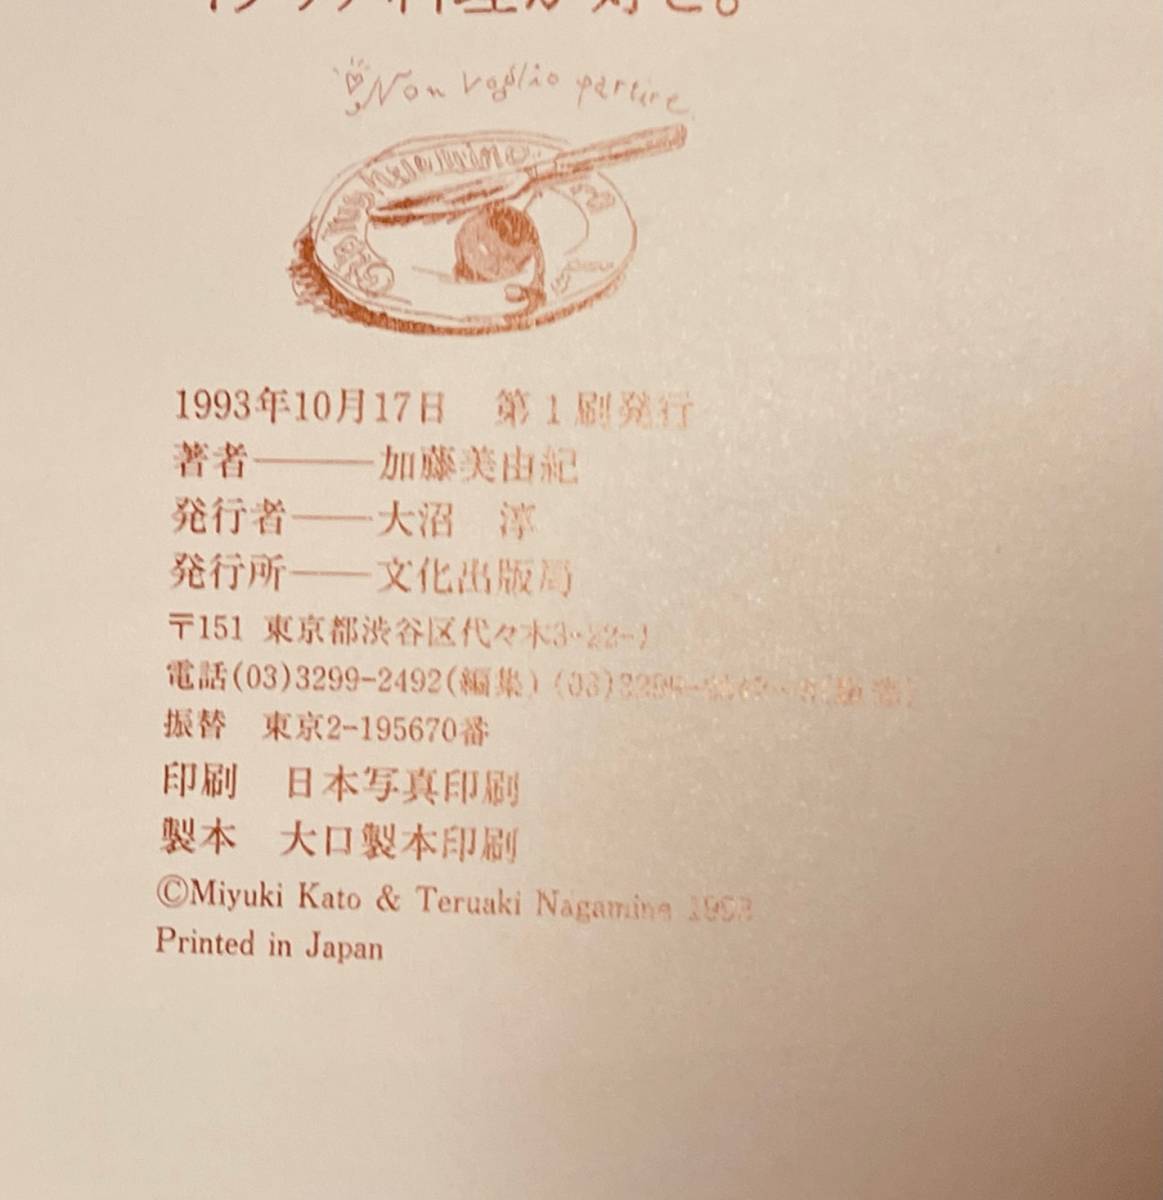 イタリア料理が好き。
Non voglio partire
1993年10月17日　第1刷発行
著者———加藤美由紀
発行者——大沼　淳
発行所——文化出版局
〒151 東京都渋谷区代々木3-22-1
電話(03)3299-2492(編集)
振替　東京2-195670番
印刷　日本写真印刷
製本　大口製本印刷
©Miyuki Kato & Teruaki Nagamine 1993
Printed in Japan